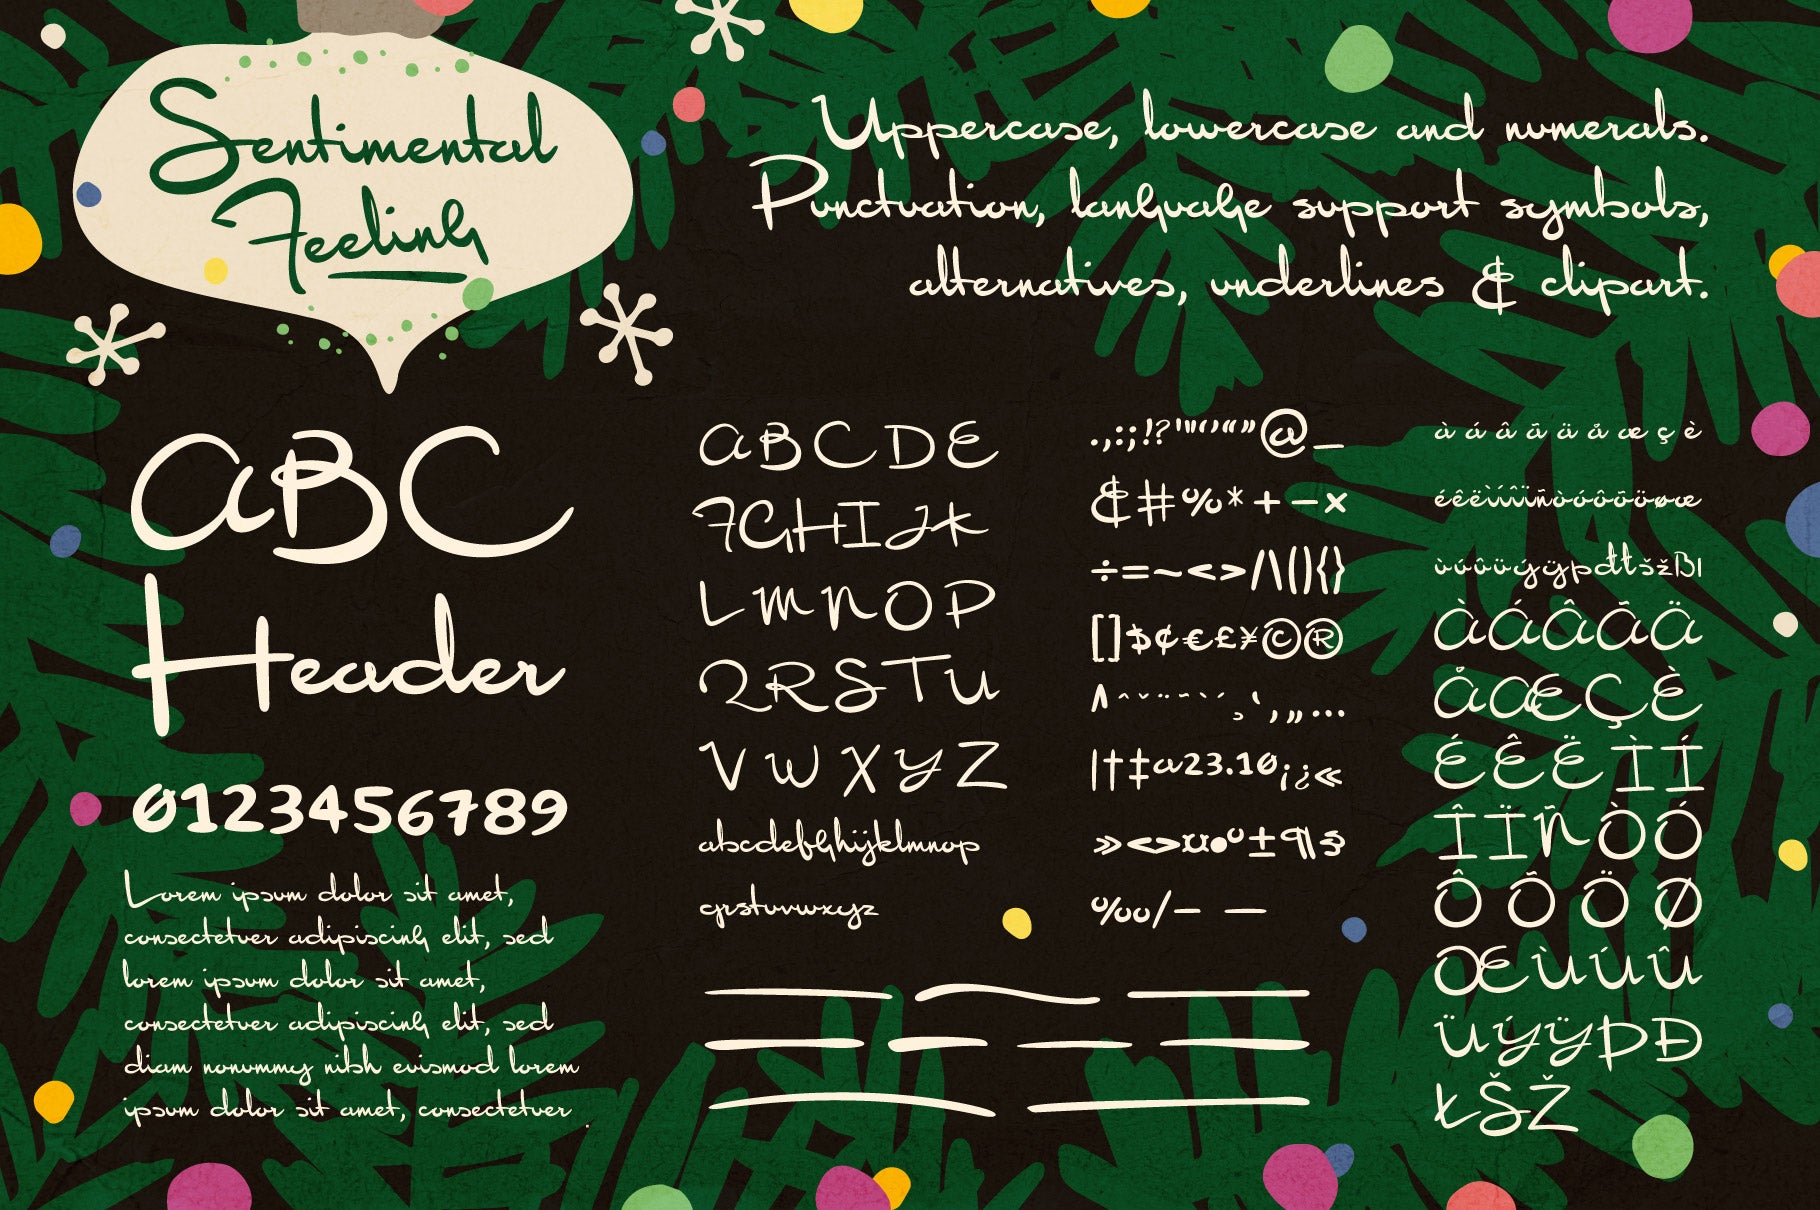 Sentimental
Feeling
Uppercase, lowercase and numerals.
Punctuation, language support symbols,
alternatives, underlines & clipart.
ABC
Header
0123456789
Lorem ipsum dolor sit amet,
consectetuer adipiscing elit, sed
lorem ipsum dolor sit amet,
consectetuer adipiscing elit, sed
diam nonummy nibh euismod lorem
ipsum dolor sit amet, consectetuer
A B C D E
F G H I J K
L M N O P
Q R S T U
V W X Y Z
abcdefghijklmnop
qrstuvwxyz
.,:;!?'"‘’“”@_
&#%*+−×
÷=~<>/\(){}
[]$¢€£¥©®
^ˆˇ¨˜`´¸‘‚„…
|†‡ª23.1º¡¿«
»<>¤•°±¶§
‰/– —
à á â ã ä å æ ç è
éêëìíîïñòóôõöøœ
ùúûüýÿþđłšžßı
ÀÁÂÃÄ
ÅÆÇÈ
ÉÊËÌÍ
ÎÏÑÒÓ
Ô Õ Ö Ø
ŒÙÚÛ
ÜÝŸÞĐ
ŁŠŽ